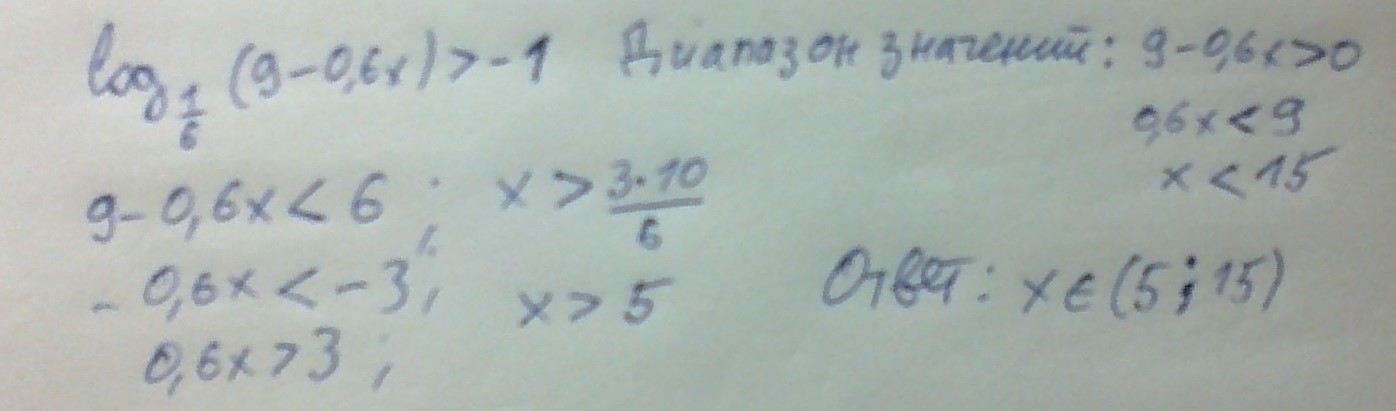 log_{1/6} (9-0,6x) > -1 Диапазон значений: 9-0,6x>0
0,6x<9
x<15
9-0,6x<6 ; x > 3·10/6
-0,6x<-3; x>5
0,6x>3 ;
Ответ: x∈(5;15)